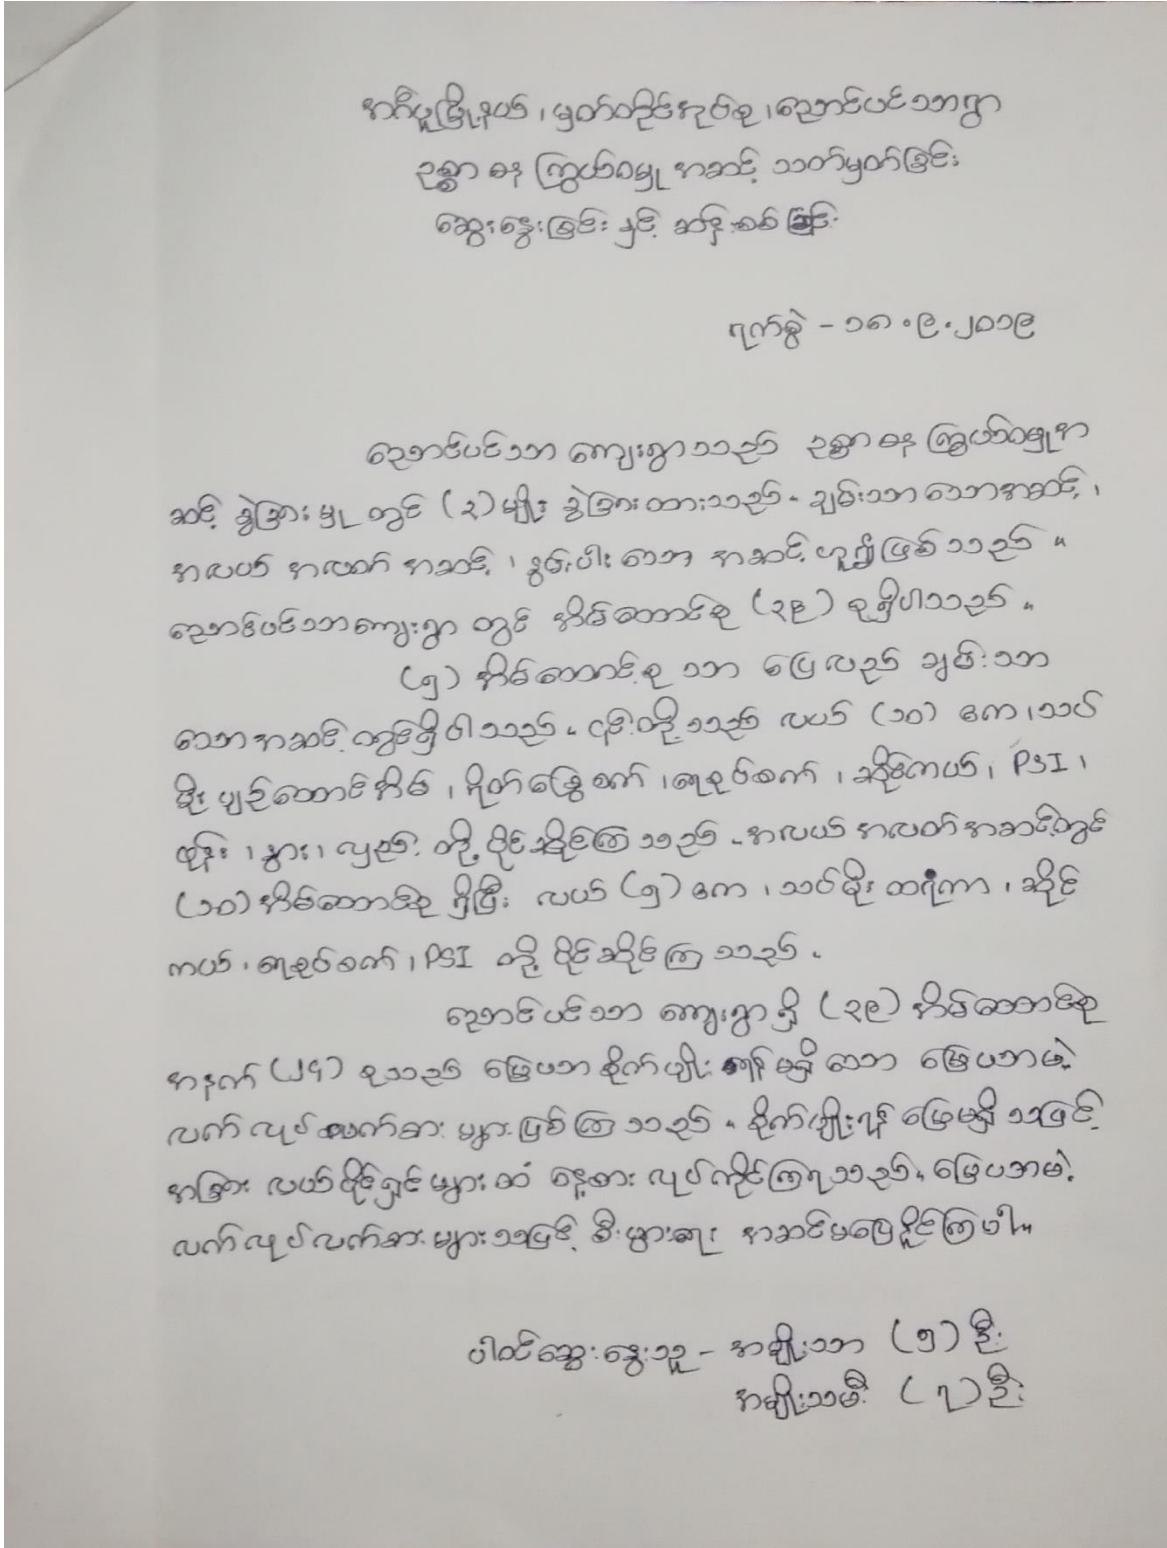 အင်္ဂပူမြို့နယ်၊ မှတ်တိုင်အုပ်စု၊ ညောင်ပင်သာရွာ
ဥစ္စာ ဓန ကြွယ်ဝမှု အဆင့် သတ်မှတ်ခြင်း
ဆွေးနွေးခြင်း နှင့် ဆန်းစစ်ခြင်း
ရက်စွဲ - ၁၈.၉.၂၀၁၉
ညောင်ပင်သာ ကျေးရွာသည် ဥစ္စာ ဓန ကြွယ်ဝမှုအ
ဆင့် ခွဲခြားမှု တွင် (၃)မျိုး ခွဲခြားထားသည်။ ချမ်းသာသောအဆင့်၊
အလယ် အလတ် အဆင့်၊ နွမ်းပါးသော အဆင့်ဟူ၍ဖြစ်သည်။
ညောင်ပင်သာကျေးရွာ တွင် အိမ်ထောင်စု (၃၉) စုရှိပါသည်။
(၅) အိမ်ထောင်စု သာ ပြေလည် ချမ်းသာ
သောအဆင့်တွင်ရှိပါသည်။ ၎င်းတို့သည် လယ် (၁၀) ဧက၊ သပ်
မိုး ပျဉ်ထောင်အိမ်၊ ရိုက်ခြွေစက်၊ ရေစုပ်စက်၊ ဆိုင်ကယ်၊ PSI၊
ထွန်၊ နွား၊ လှည်း တို့ ပိုင်ဆိုင်ကြသည်။ အလယ်အလတ်အဆင့်တွင်
(၁၀)အိမ်ထောင်စု ရှိပြီး လယ် (၅) ဧက၊ သပ်မိုး ထရံကာ၊ ဆိုင်
ကယ်၊ ရေစုပ်စက်၊ PSI တို့ ပိုင်ဆိုင်ကြသည်။
ညောင်ပင်သာ ကျေးရွာ ရှိ (၃၉) အိမ်ထောင်စု
အနက် (၂၄) စုသည် မြေယာ စိုက်ပျိုးရန် မရှိသော မြေယာမဲ့
လက်လုပ်လက်စား များဖြစ်ကြသည်။ စိုက်ပျိုးရန် မြေမရှိသဖြင့်
အခြား လယ်ပိုင်ရှင်များထံ နေ့စား လုပ်ကိုင်ကြရသည်။ မြေယာမဲ့
လက်လုပ်လက်စားများသဖြင့် စီးပွားရေး အဆင်မပြေနိုင်ကြပါ။
ပါဝင်ဆွေးနွေးသူ - အမျိုးသား (၅) ဦး
အမျိုးသမီး (၇) ဦး